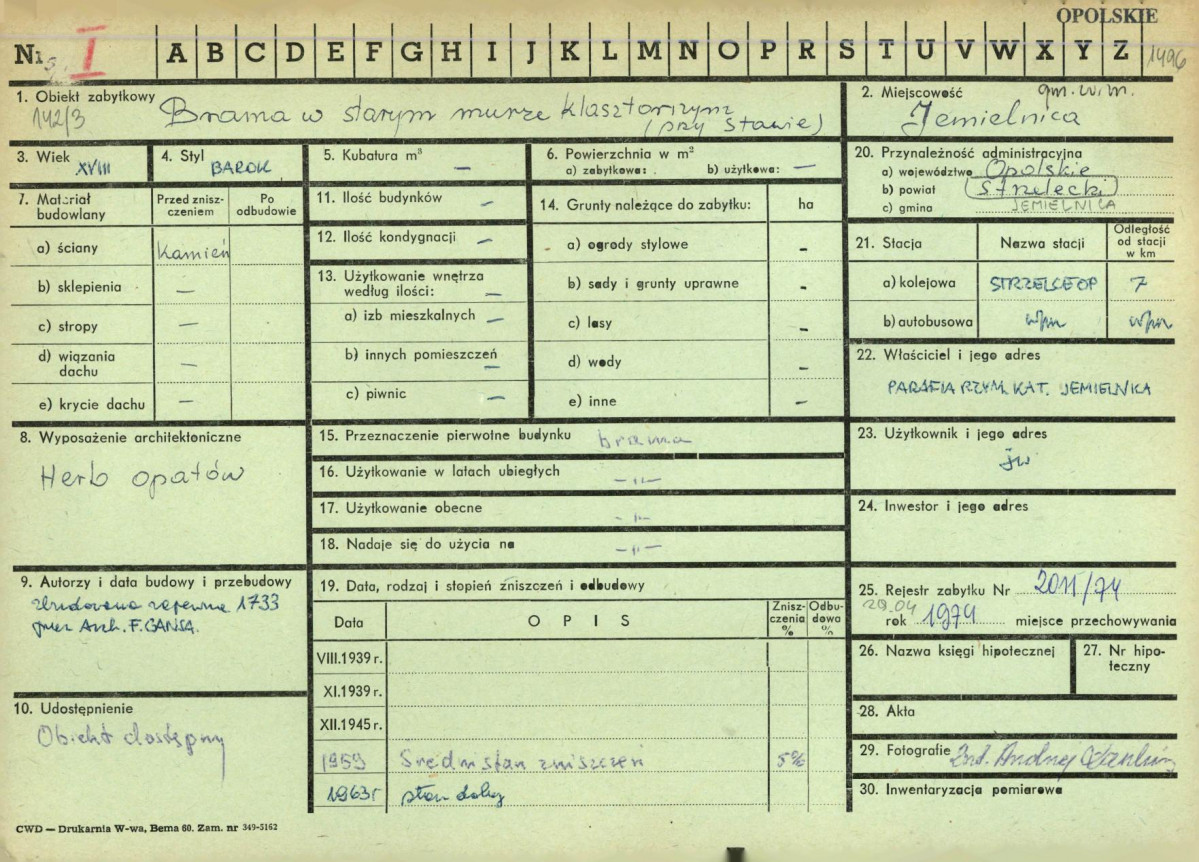 OPOLSKIE
Nr I A B C D E F G H I J K L M N O P R S T U V W X Y Z 1496
1. Obiekt zabytkowy Brama w starym murze klasztornym
142/3 (przy stawie)
2. Miejscowość gm. w.m.
Jemielnica
3. Wiek XVIII
4. Styl BAROK
5. Kubatura m³ —
6. Powierzchnia w m²
a) zabytkowa: . b) użytkowa: —
20. Przynależność administracyjna
a) województwo Opolskie
b) powiat Strzelecki
c) gmina JEMIELNICA
7. Materiał budowlany
Przed zniszczeniem
Po odbudowie
a) ściany Kamień
b) sklepienia —
c) stropy —
d) wiązania dachu —
e) krycie dachu —
11. Ilość budynków —
12. Ilość kondygnacji —
13. Użytkowanie wnętrza
według ilości: —
a) izb mieszkalnych —
b) innych pomieszczeń —
c) piwnic —
14. Grunty należące do zabytku: ha
a) ogrody stylowe -
b) sady i grunty uprawne -
c) lasy -
d) wody -
e) inne -
21. Stacja
Nazwa stacji
Odległość
od stacji
w km
a) kolejowa STRZELCE OP 7
b) autobusowa
22. Właściciel i jego adres
PARAFIA RZYM. KAT. JEMIELNICA
8. Wyposażenie architektoniczne
Herb opatów
15. Przeznaczenie pierwotne budynku brama
16. Użytkowanie w latach ubiegłych —"—
17. Użytkowanie obecne —"—
18. Nadaje się do użycia na —"—
23. Użytkownik i jego adres
jw
24. Inwestor i jego adres
9. Autorzy i data budowy i przebudowy
zbudowana zapewne 1733
przez Arch. F. GANSA.
19. Data, rodzaj i stopień zniszczeń i odbudowy
Data
O P I S
Zniszczenia %
Odbudowa %
VIII.1939 r.
XI.1939 r.
XII.1945 r.
1959 Średni stan zniszczeń 5%
1963r stan dobry
25. Rejestr zabytku Nr 2011/74
29.04
rok 1974 miejsce przechowywania
26. Nazwa księgi hipotecznej
27. Nr hipoteczny
10. Udostępnienie
Obiekt dostępny
28. Akta
29. Fotografie Andrzej
30. Inwentaryzacja pomiarowa
CWD — Drukarnia W-wa, Bema 60. Zam. nr 349-5162